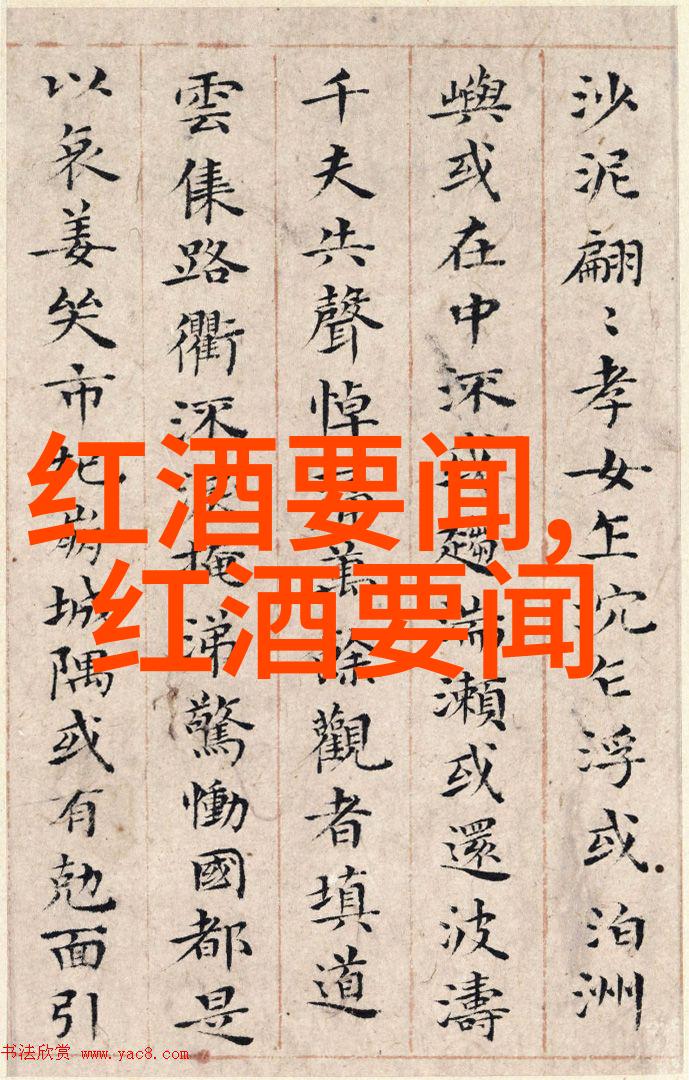 沙泥翩〻孝女乍沉乍浮或泊洲
嶼或在中深或趨湍瀨或還波濤
千夫失聲悼痛萬餘觀者填道
雲集路衢深淚掩涕驚慟國都是
以哀姜哭市杞崩城隅或有尅面引
红酒要闻,
红酒要闻
书法欣赏 www.yac8.com